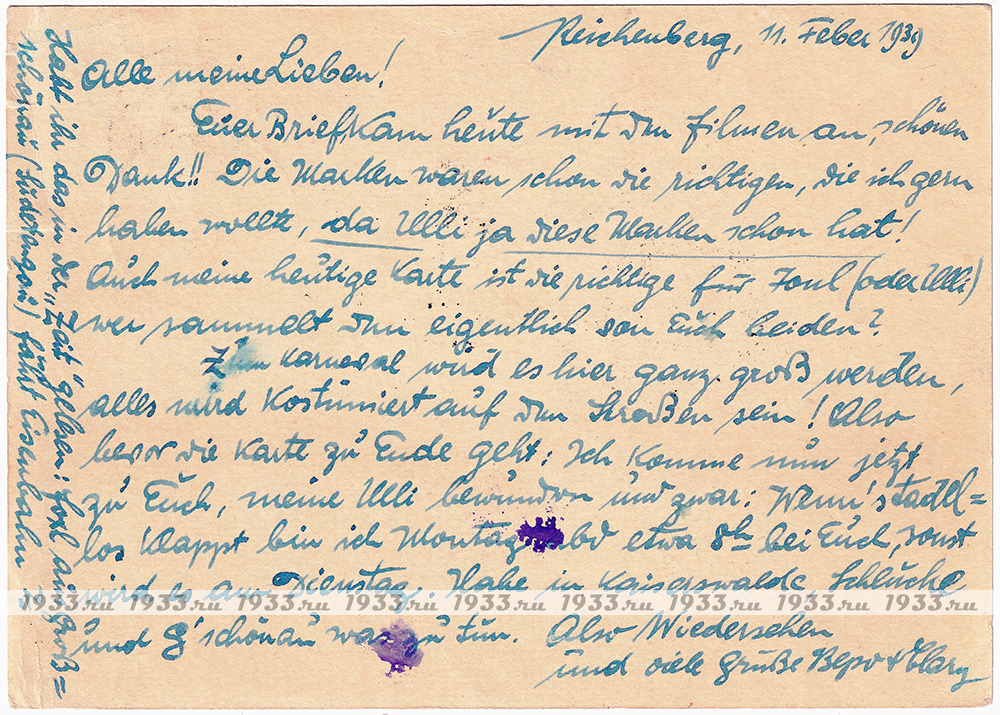 Reichenberg, 11. Feber 1939
Alle meine Lieben!
Euer Brief kam heute mit den Filmen an, schönen
Dank!! Die Marken waren schon die richtigen, die ich gern
haben wollte, da Ulli ja diese Marken schon hat!
Auch meine heutige Karte ist die richtige für (oder Ulli)
wer sammelt den eigentlich von Euch beiden?
Zum Karneval wird es hier ganz groß werden,
alles wird Kostümiert auf den Straßen sein! Also
bevor die Karte zu Ende geht: Ich komme nun jetzt
zu Euch, meine Ulli bewundern und zwar: Wenn's tadel=
los klappt bin ich Montag abd etwa 8h bei Euch, sonst
wird es am Dienstag. Habe in Kaiserswalde, Schlucke
und G'schönau was zu tun. Also Wiedersehen
und viele Grüße Bepo + Clary
Habt ihr das in der "Zeit" gelesen: aus Groß=
schönau (Südetengau) fährt Eisenbahn
1933.ru 1933.ru 1933.ru 1933.ru 1933.ru 1933.ru 1933.ru 1933.ru 1933.ru